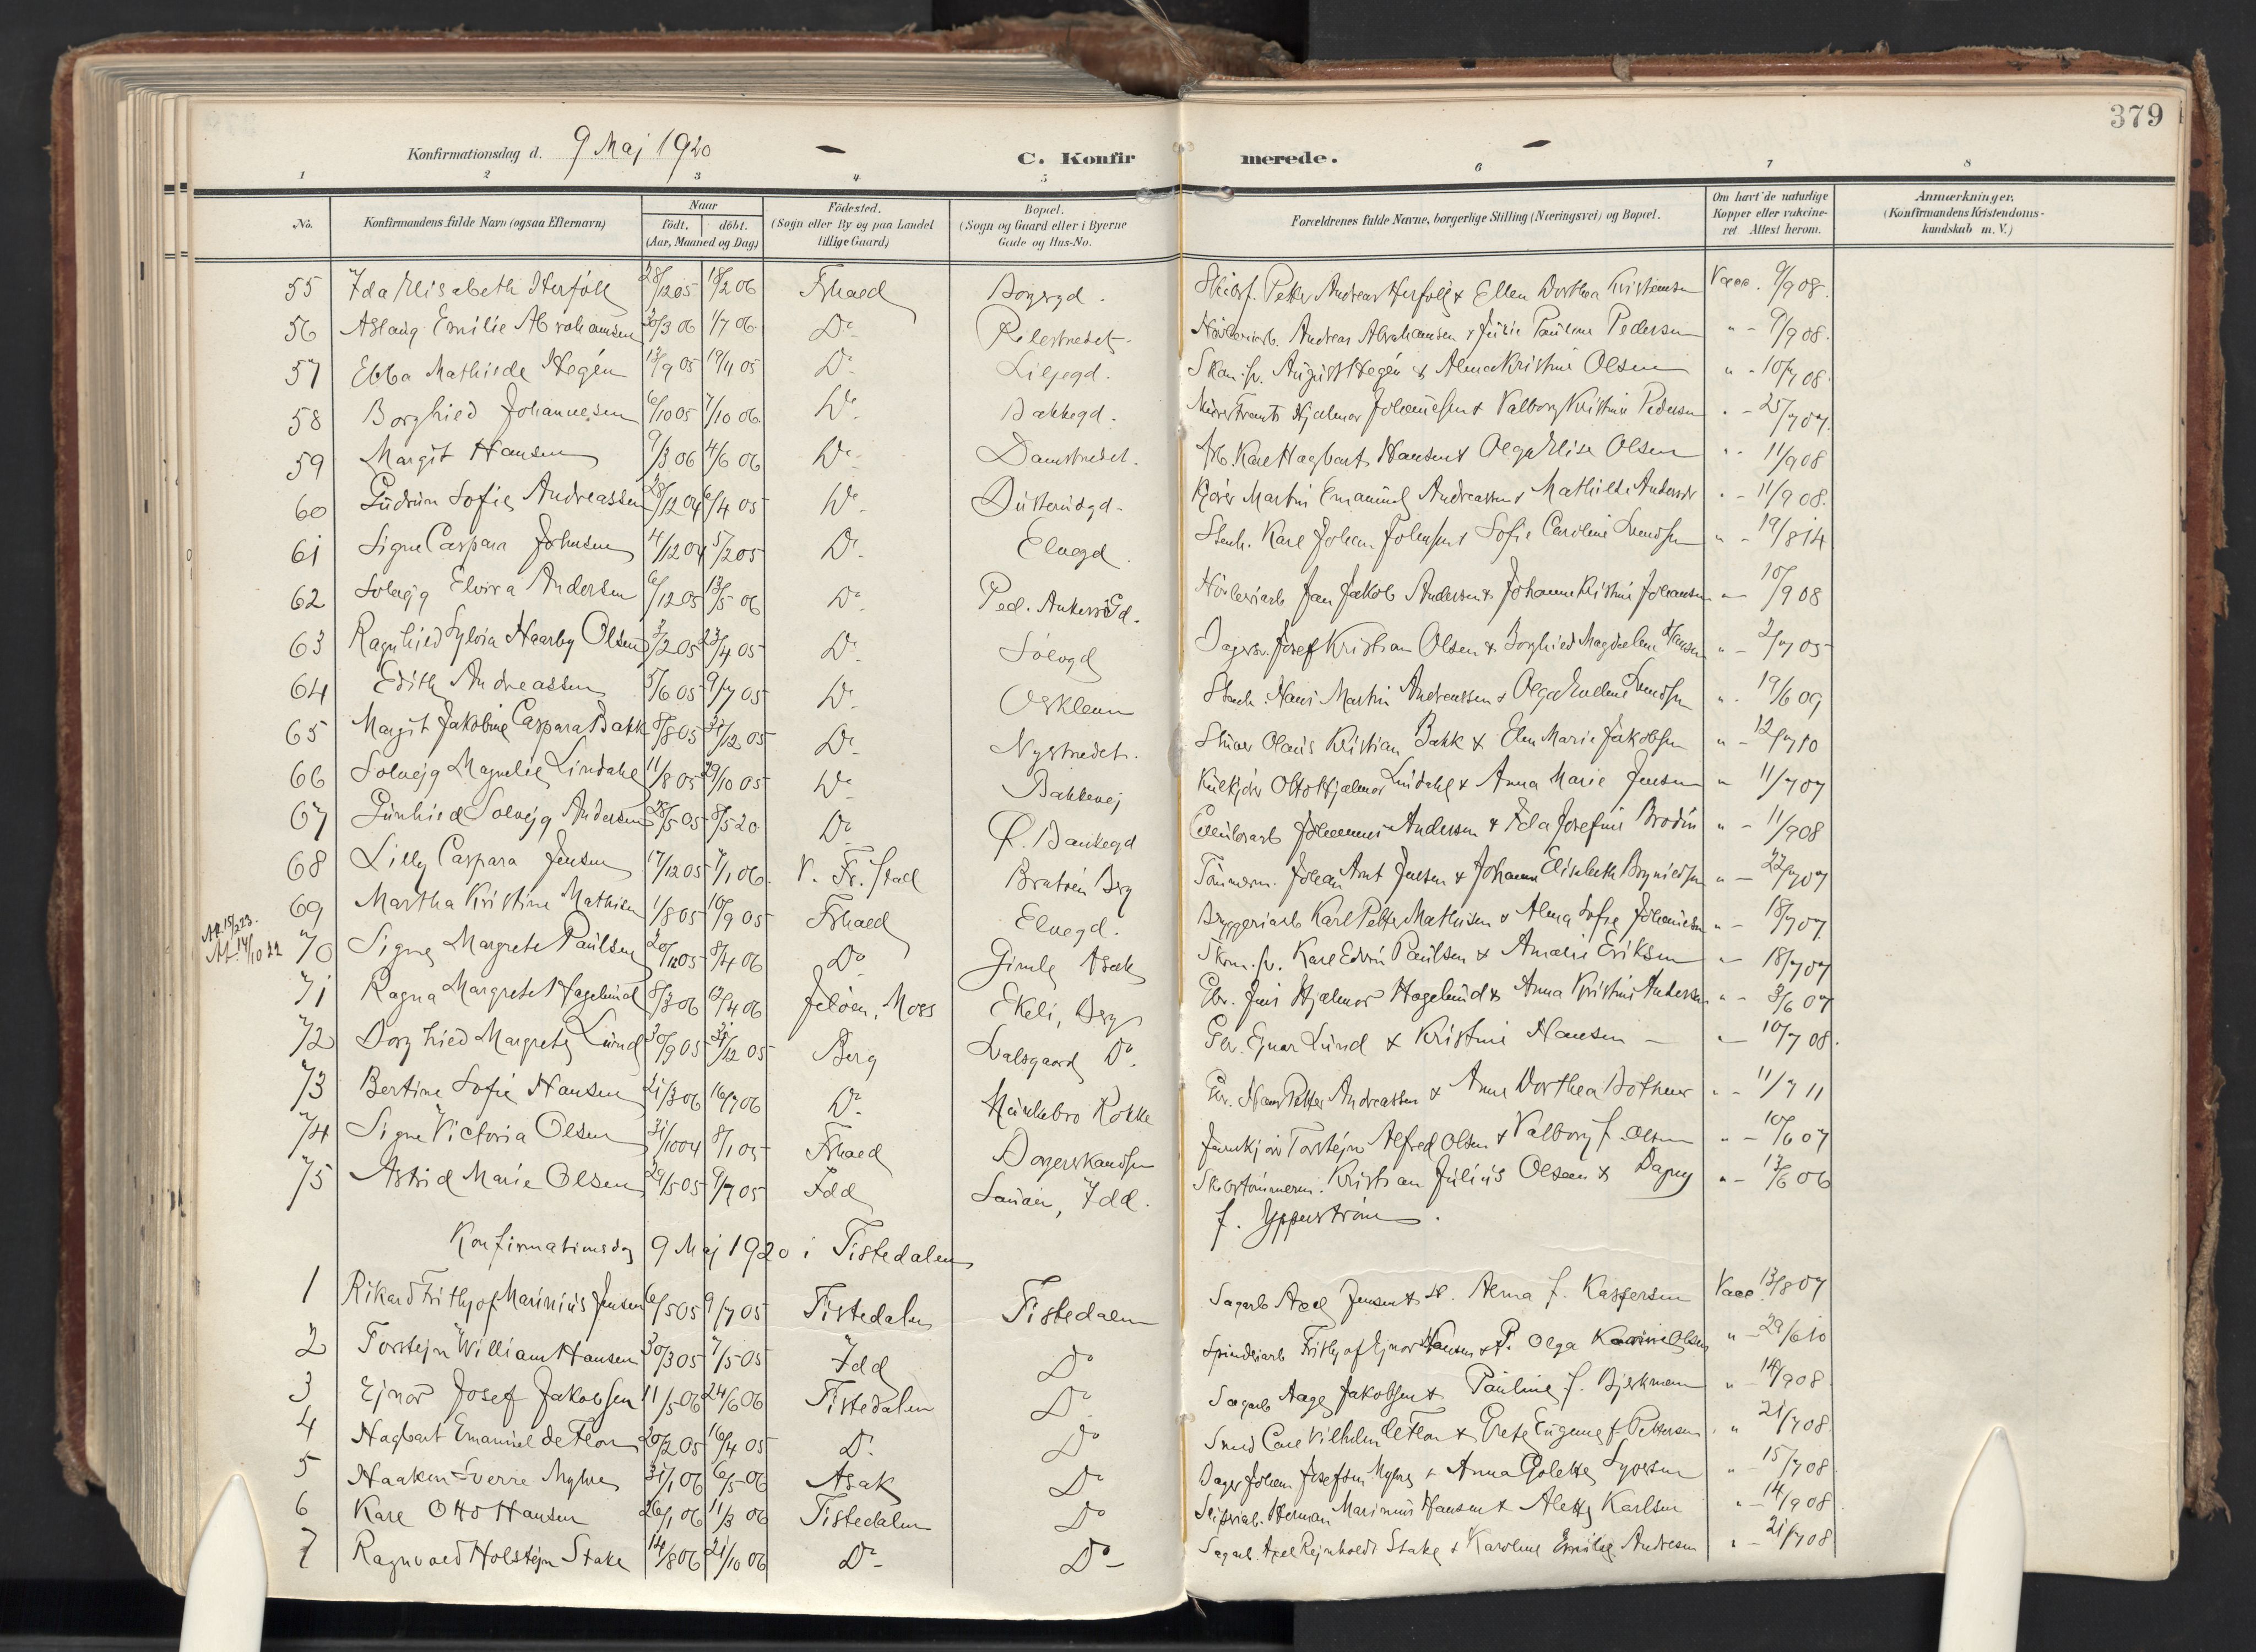 379
Konfirmationsdag d. 9 Maj 1920 C. Konfir merede.
1 2 3 4 5 6 7 8
No. Konfirmandens fulde Navn (ogsaa Efternavn) Naar Födt, döbt. (Aar, Maaned og Dag) Födested. (Sogn eller By og paa Landet tillige Gaard) Bopæl. (Sogn og Gaard eller i Byerne Gade og Hus-No. Forældrenes fulde Navne, borgerlige Stilling (Næringsvei) og Bopæl. Om havt de naturlige Kopper eller vakcineret Attest herom. Anmærkninger. (Konfirmandens Kristendomskundskab m. V.)
55 Ida Elisabeth Herföll 28/12 05 18/2 06 Frhald Borgergd. Petter Andreas Herföll & Ellen Dorthea Kristensen Vacc. 9/9 08.
56 Aslaug Emilie Abrahamsen 30/3 06 1/7 06 Do Pilestredet. Andreas Abrahamsen & Julie Pauline Pedersen " - 9/9 08.
57 Ebba Mathilde Hegén 13/9 05 19/11 05 Do Liljegd. August Hegén & Alma Kristine Olsen " - 10/7 08.
58 Borghild Johannesen 6/10 05 7/10 06 Do Bakkegd. Hjalmar Johannesen & Valborg Kristine Pedersen " - 25/7 07.
59 Margit Hansen 9/3 06 4/6 06 Do Damstredet. Arb. Karl Hagbart Hansen & Olga Elise Olsen " - 11/9 08
60 Gudrun Sofie Andreassen 28/12 04 6/4 05 Do Martin Emanuel Andreassen & Mathilde Andersen " - 11/9 08.
61 Signe Caspara Johnsen 4/12 04 5/2 05 Do Elvegd. Stenh. Karl Johan Johnsen & Sofie Caroline Svendsen " - 19/8 14
62 Solvejg Elvira Andersen 6/12 05 13/5 06 Do Ped. Ankers Gd. Hövleriarb Jan Jakob Andersen & Johanne Kristine Johansen " - 10/9 08
63 Ragnhild Sylvia Haarby Olsen 3/2 05 23/4 05 Do Sölvgd Josef Kristian Olsen & Borghild Magdalene Hansen " - 2/7 05
64 Edith Andreassen 5/6 05 9/7 05 Do Oskleiva Stenh. Hans Martin Andreassen & Olga Svendsen " - 19/6 09
65 Margit Jakobine Caspara Bakk 8/8 05 31/12 05 Do Nystredet. Olaus Kristian Bakk & Elen Marie Jakobsen " - 12/7 10
66 Solvejg Magnelie Lindahl 11/8 05 29/10 05 Do Bakkevej Kulkjörer Otto Hjalmar Lindahl & Anna Marie Jensen " 11/7 07
67 Gunhild Solvejg Andersen 28/5 05 8/5 20 Do Ö. Bankegd Johannes Andersen & Ida Josefine Brodin " - 11/9 08
68 Lilly Caspara Jensen 17/12 05 7/1 06. V. Fr.stad Bratvén Berg Tömmerm. Johan Arnt Jensen & Johanne Elisabeth Brynildsen " - 22/7 07
69 Martha Kristine Mathisen 1/8 05 10/9 05 Frhald Elvegd. Bryggeriarb Karl Petter Mathisen & Alma Sofie Johannesen " - 18/7 07.
At. 15/2 23.
At. 14/10 22
70 Signe Margrete Paulsen 20/12 05 8/4 06 Do Gimle Asak Karl Edvin Paulsen & Amalie Eriksen " 18/7 07
71 Ragna Margrete Hagelund 8/3 06 12/4 06 Jelöen, Moss Ekeli, Berg Gbr. Jens Hjalmar Hagelund & Anna Kristine Andersen " - 3/6 07
72 Borghild Margrete Lund 30/9 05 31/12 05 Berg Svalsgaard Do. Gbr. Ejnar Lund & Kristine Hansen - " - 10/7 08.
73 Bertine Sofie Hansen 21/3 06 16/7 06 Do Rokke Gbr. Hans Petter Andreassen & Anne Dorthea Bothner " - 11/7 11
74 Signe Victoria Olsen 31/10 04 8/1 05 Frhald Torstejn Alfred Olsen & Valborg f. Olsen " - 10/6 07
75 Astrid Marie Olsen 29/5 05 9/7 05 Idd , Idd. Kristian Julius Olsen & Dagny " - 13/6 06
f. Ypperström.
Konfirmationsdag 9 Maj 1920 i Tistedalen
1 Rikard Frithjof Marinius Jensen 6/5 05 9/7 05 Tistedalen Tistedalen Sagarb Axel Jensen & H. Alma f. Kaspersen Vacc. 13/8 07
2 Torstejn William Hansen 30/3 05 7/5 05 Idd Do Spinderiarb Frithjof Ejnar Hansen & P. Olga Karine Olsen " - 29/6 10
3 Ejnar Josef Jakobsen 11/5 06 24/6 06 Tistedalen Do Sagarb Aage Jakobsen & Pauline f. Bjerkman " - 14/9 08
4 Hagbart Emanuel de Flon 20/2 05 16/4 05 Do Do Smed Carl Vilhelm de Flon & Grete Eugenie f. Pettersen " 21/7 08.
5 Haakon Sverre Myhre 31/1 06 6/5 06 Asak Do Bager Johan Josefsen Myhre & Anna Golette Syversen " 15/7 08
6 Karl Otto Hansen 26/1 06 11/3 06 Tistedalen Do Sliperiarb. Herman Marinius Hansen & Alette Karlsen " - 14/9 08.
7 Ragnvald Holstejn Stake 14/8 06 21/10 06 Do Do Sagarb. Axel Rejnholdt Stake & Karoline Emilie Andresen " - 21/7 08